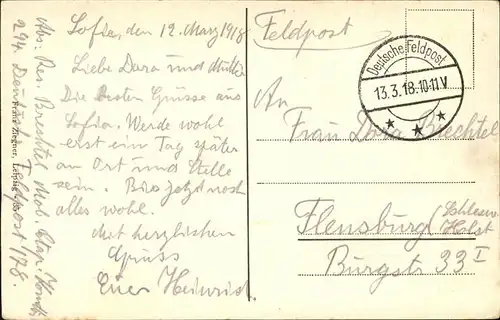 Sofia, den 12. März 1918
Liebe Dora und Mutter
Die besten Grüsse aus
Sofia. Werde wohl
erst ein Tag später
an Ort und Stelle
sein. Bis jetzt noch
alles wohl.
Mit herzlichen
Gruss
Euer Heinrich
Feldpost
Deutsche Feldpost
13.3.18.10-11V
An
Frau Dora Brechtel
Flensburg (Schlesw.
Holst
Burgstr 33 I
Abs. Res. Brechtel Mob. Etap.
294 Feldpost 178.
Franz Ziegner, Leipzig